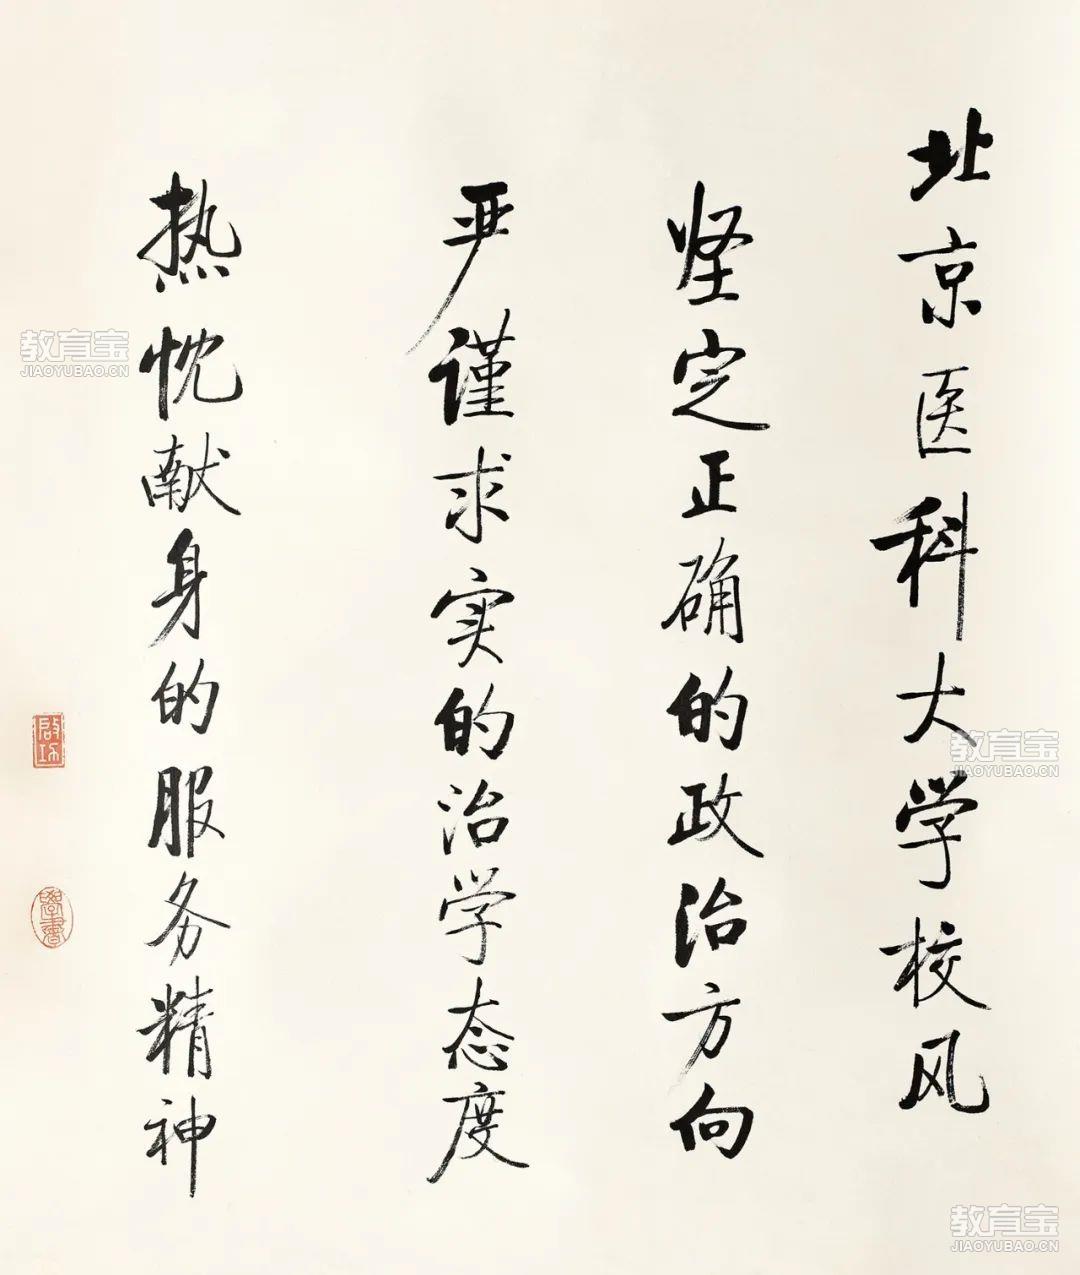 北京医科大学校风
坚定正确的政治方向
严谨求实的治学态度
热忱献身的服务精神
启功
学书
教育宝
JIAOYUBAO.CN
教育宝
JIAOYUBAO.CN
教育宝
JIAOYUBAO.CN